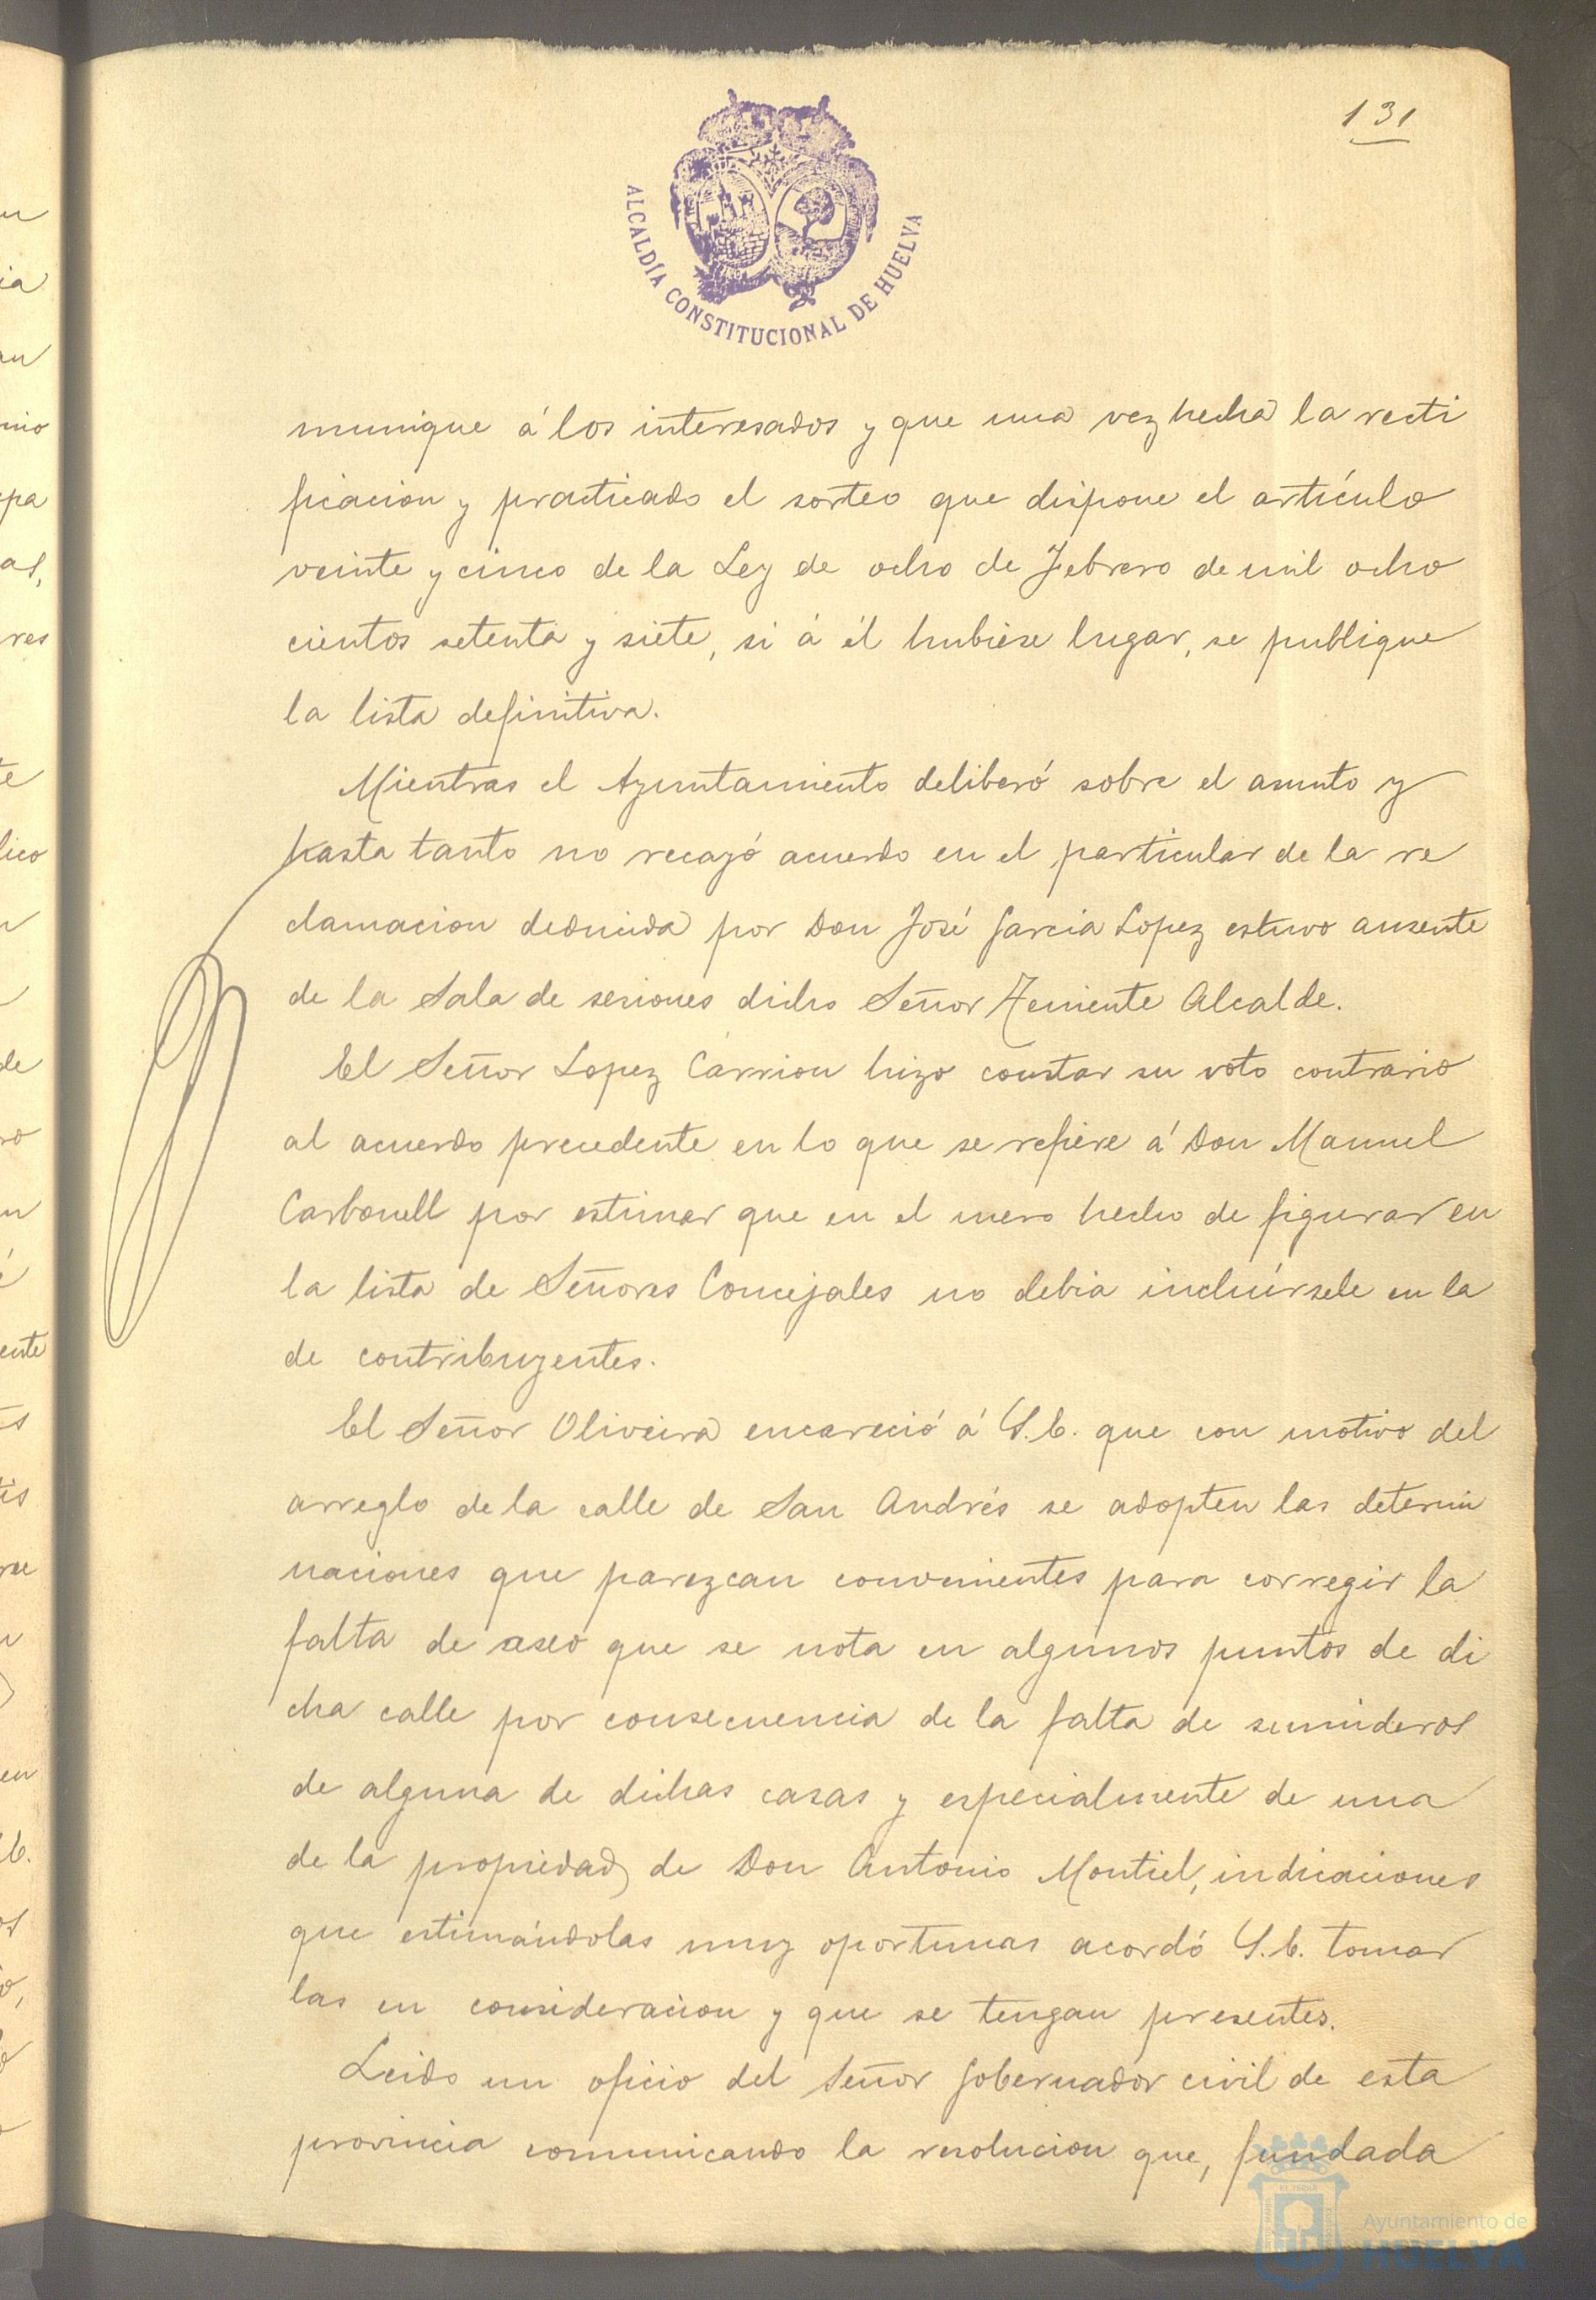 131
ALCALDÍA CONSTITUCIONAL DE HUELVA
munique á los interesados y que una vez hecha la recti
ficacion y practicado el sorteo que dispone el artículo
veinte y cinco de la Ley de ocho de Febrero de mil ocho
cientos setenta y siete, si á él hubiese lugar, se publique
la lista definitiva.
Mientras el Ayuntamiento deliberó sobre el asunto y
hasta tanto no recayó acuerdo en el particular de la re
clamacion deducida por Don José Garcia Lopez estuvo ausente
de la Sala de sesiones dicho Señor Teniente Alcalde.
El Señor Lopez Carrion hizo constar su voto contrario
al acuerdo precedente en lo que se refiere á Don Manuel
Carbonell por estimar que en el mero hecho de figurar en
la lista de Señores Concejales no debia incluírsele en la
de contribuyentes.
El Señor Oliveira encareció á S.E. que con motivo del
arreglo de la calle de San Andrés se adopten las determi
naciones que parezcan convenientes para corregir la
falta de aseo que se nota en algunos puntos de di
cha calle por consecuencia de la falta de sumideros
de alguna de dichas casas y especialmente de una
de la propiedad de Don Antonio Montiel, indicaciones
que estimándolas muy oportunas acordó S.E. tomar
las en consideracion y que se tengan presentes.
Leido un oficio del Señor Gobernador civil de esta
provincia comunicando la resolucion que, fundada
Ayuntamiento de
HUELVA